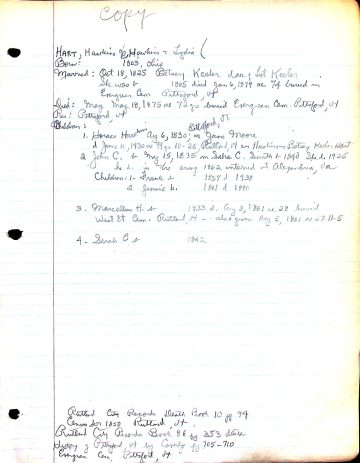 Copy
HART, Hawkins by Hawkins & Lydia (
Born: 1803, Ohio
Married: Oct 18, 1825 Betsey Keeler daug Sol Keeler
She was b 1805 died Jan 6, 1879 ae 74 buried in
Evergreen Cem Pittsford, Vt
Died: May 18, 1875 ae 72 yrs buried Evergreen Cem. Pittsford, Vt
Res: Pittsford, Vt
Children:
1. Horace Ag 6, 1830 m Jane Moore
d June 16, 1930 Rutland, Vt Hawkins & Betsey Keeler Hart
2 John C. b My 15, 1835 m C. Smith b 1840 She d. 1925
he d. in the army 1862 interred at Alexandria, Va
Children: 1- Frank b 1857 d 1938
2 Jennie b. 1861 d 1880
3. Marcellus H. b 1833 d. Ag 3, 1861 ae 28 buried
West St Cem. Rutland, Vt - - also given Ag 5, 1861 ae 27-11-5
4 - Sarah C b 1842
Rutland City Records Death Book 10 pg 74
Census for 1850 Rutland, Vt.
Rutland City Records Book 86 pg 353 death
History of Pittsford Vt by Caverly pg 705-710
Evergreen Cem Pittsford, Vt